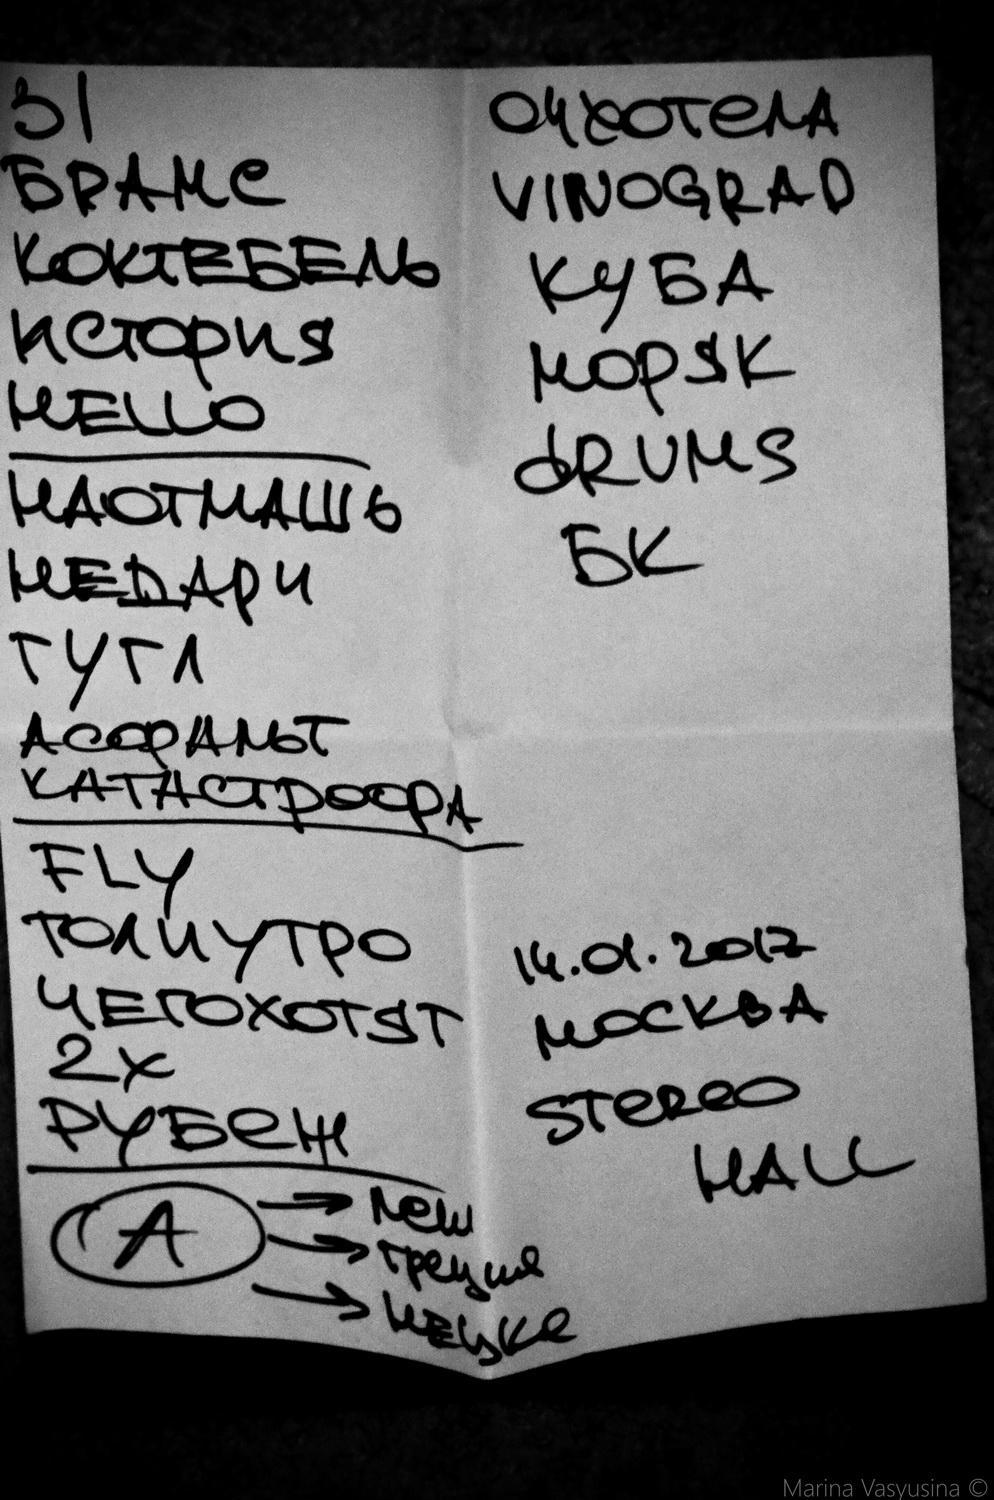 31
БРАМС
КОКТЕБЕЛЬ
ИСТОРИЯ
HELLO
НАОТМАШЬ
НЕДАРИ
ГУГЛ
АСФАЛЬТ
КАТАСТРОФА
FLY
ТОЛИУТРО
ЧЕГОХОТЯТ
2х
РУБЕЖ
А
леш
греция
нецке
ОЧХОТЕЛА
VINOGRAD
КУБА
МОРЯК
dRUMS
БК
14.01.2017
МОСКВА
STEREO
HALL
Marina Vasyusina ©